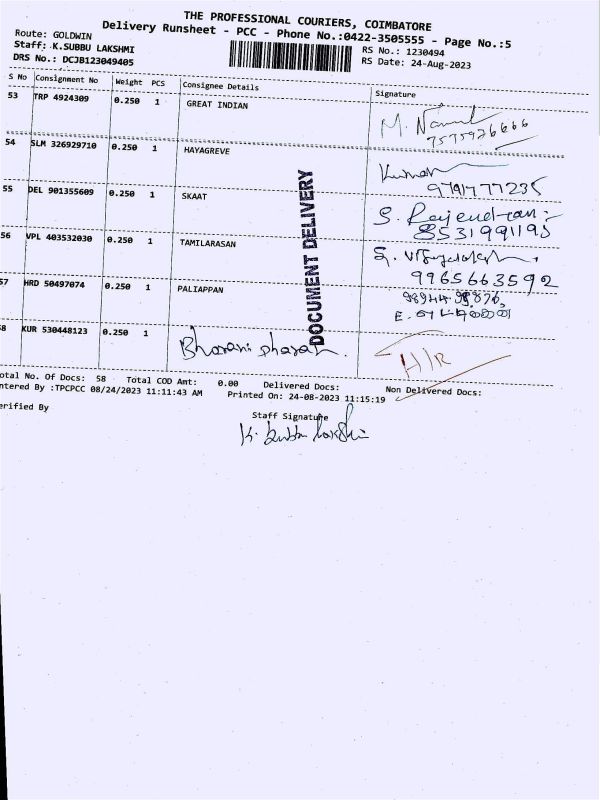 THE PROFESSIONAL COURIERS, COIMBATORE
Delivery Runsheet - PCC - Phone No.:0422-3505555 - Page No.:5
Route: GOLDWIN
Staff: K.SUBBU LAKSHMI
DRS No.: DCJB123049405
RS No.: 1230494
RS Date: 24-Aug-2023
S No Consignment No Weight PCS Consignee Details Signature
53 TRP 4924309 0.250 1 GREAT INDIAN
M.
7575926666
54 SLM 326929710 0.250 1 HAYAGREVE
Kumar
9791777235
55 DEL 901355609 0.250 1 SKAAT
S. Rajendran
8531991195
56 VPL 403532030 0.250 1 TAMILARASAN
9965663592
57 HRD 50497074 0.250 1 PALIAPPAN
E.
58 KUR 530448123 0.250 1 Bharani
H/R
DOCUMENT DELIVERY
otal No. Of Docs: 58 Total COD Amt: 0.00 Delivered Docs: Non Delivered Docs:
ntered By :TPCPCC 08/24/2023 11:11:43 AM Printed On: 24-08-2023 11:15:19
erified By
Staff Signature
K. Subbu lakshmi